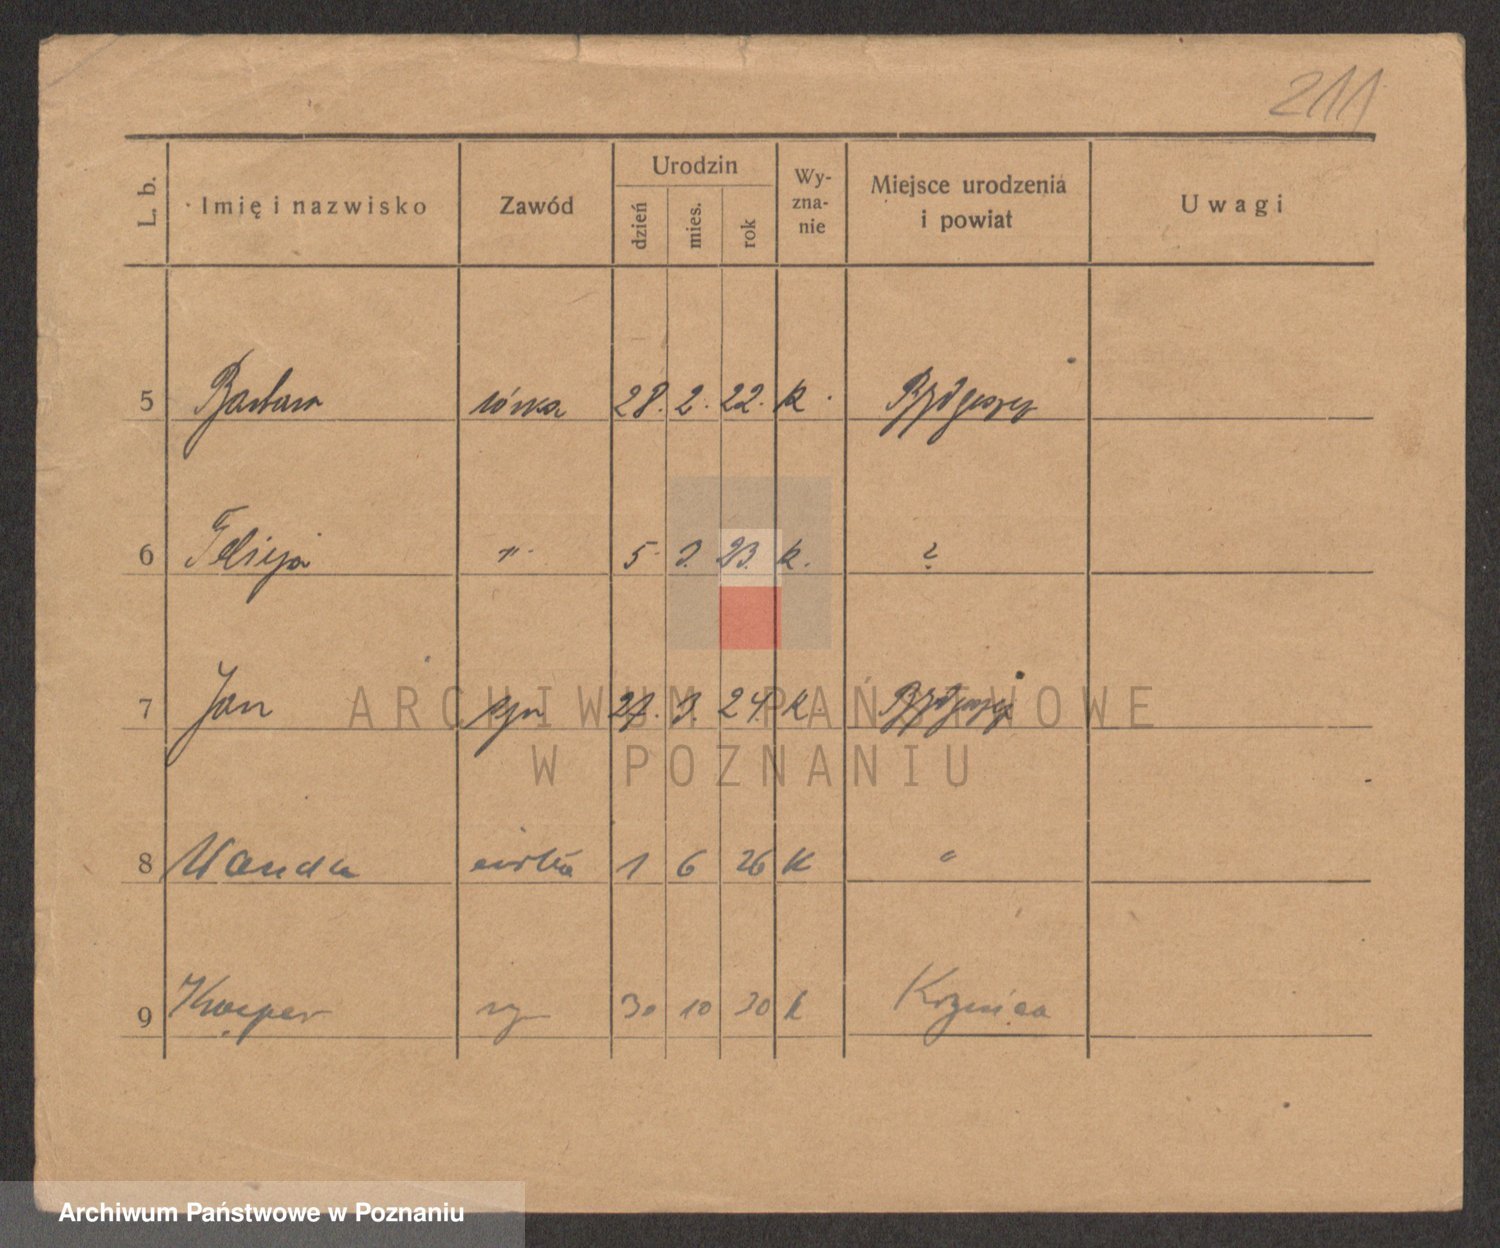 211
L. b. Imię i nazwisko Zawód Urodzin Wy-zna-nie Miejsce urodzenia i powiat Uwagi
dzień mies. rok
5 Barbara córka 28. 2. 22. k. Bydgoszcz
6 Felicja " 5. 3. 23. k. ?
7 Jan syn 3. 24. k
8 Wanda córka 1 6 26 k "
9 Kacper 30 10 30 k
ARCHIWUM PAŃSTWOWE
W POZNANIU
Archiwum Państwowe w Poznaniu